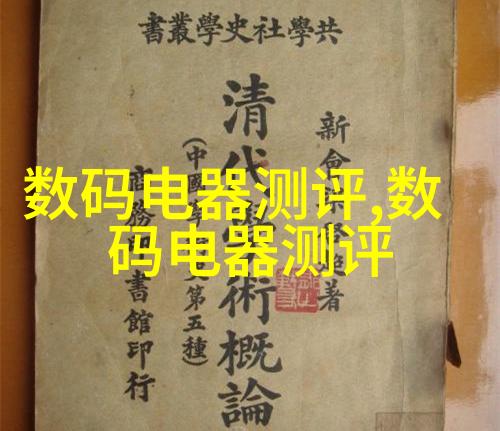 共學社史學叢書
数码电器测评,数
码电器测评
新會梁啟超著
清代學術概論
(中國 第五種)
商務印書館印行